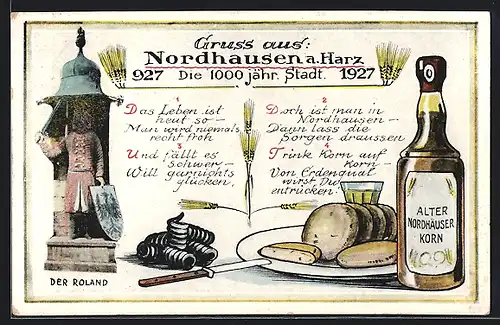 Gruss aus:
Nordhausen a. Harz
927 Die 1000 jähr. Stadt. 1927
1
Das Leben ist
heut so —
Man wird niemals
recht froh
2
Doch ist man in
Nordhausen —
Dann lass die
Sorgen draussen
3
Und fällt es
schwer —
Will garnichts
glücken,
4
Trink Korn auf
Korn —
Von Erdenqual
wirst Du
entrücken!
ALTER
NORDHÄUSER
KORN
DER ROLAND